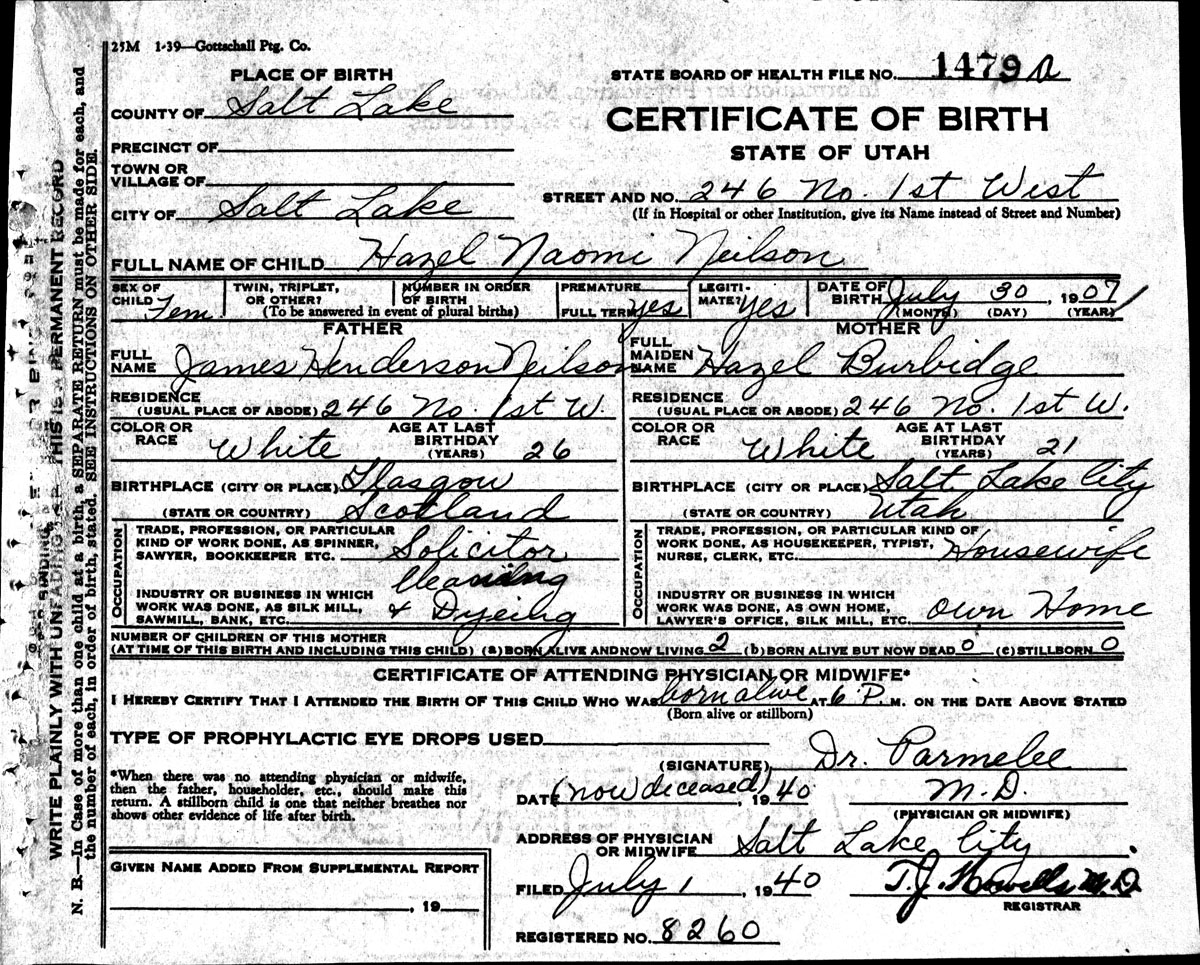 25M 1-39—Gottschall Ptg. Co.
PLACE OF BIRTH
STATE BOARD OF HEALTH FILE NO. 1479 a
COUNTY OF Salt Lake
CERTIFICATE OF BIRTH
PRECINCT OF
STATE OF UTAH
TOWN OR
VILLAGE OF
STREET AND NO. 246 No. 1st West
CITY OF Salt Lake
(If in Hospital or other Institution, give its Name instead of Street and Number)
FULL NAME OF CHILD Hazel Naomi Neilson
SEX OF CHILD Fem.
TWIN, TRIPLET, OR OTHER?
NUMBER IN ORDER OF BIRTH
(To be answered in event of plural births)
PREMATURE
FULL TERM yes
LEGITIMATE? yes
DATE OF BIRTH July 30, 1907
(MONTH) (DAY) (YEAR)
FATHER
FULL NAME James Henderson Neilson
RESIDENCE
(USUAL PLACE OF ABODE) 246 No. 1st W.
COLOR OR RACE White
AGE AT LAST BIRTHDAY (YEARS) 26
BIRTHPLACE (CITY OR PLACE) Glasgow
(STATE OR COUNTRY) Scotland
OCCUPATION
TRADE, PROFESSION, OR PARTICULAR
KIND OF WORK DONE, AS SPINNER,
SAWYER, BOOKKEEPER ETC. Solicitor
INDUSTRY OR BUSINESS IN WHICH
WORK WAS DONE, AS SILK MILL,
SAWMILL, BANK, ETC. Cleaning
& Dyeing
MOTHER
FULL MAIDEN NAME Hazel Burbidge
RESIDENCE
(USUAL PLACE OR ABODE) 246 No. 1st W.
COLOR OR RACE White
AGE AT LAST BIRTHDAY (YEARS) 21
BIRTHPLACE (CITY OR PLACE) Salt Lake City
(STATE OR COUNTRY) Utah
OCCUPATION
TRADE, PROFESSION, OR PARTICULAR KIND OF
WORK DONE, AS HOUSEKEEPER, TYPIST,
NURSE, CLERK, ETC. Housewife
INDUSTRY OR BUSINESS IN WHICH
WORK WAS DONE, AS OWN HOME,
LAWYER'S OFFICE, SILK MILL, ETC. Own Home
NUMBER OF CHILDREN OF THIS MOTHER
(AT TIME OF THIS BIRTH AND INCLUDING THIS CHILD) (a) BORN ALIVE AND NOW LIVING 2 (b) BORN ALIVE BUT NOW DEAD 0 (c) STILLBORN 0
CERTIFICATE OF ATTENDING PHYSICIAN OR MIDWIFE*
I HEREBY CERTIFY THAT I ATTENDED THE BIRTH OF THIS CHILD WHO WAS born alive AT 6 P. M. ON THE DATE ABOVE STATED
(Born alive or stillborn)
TYPE OF PROPHYLACTIC EYE DROPS USED
(SIGNATURE) Dr. Parmelee
*When there was no attending physician or midwife,
then the father, householder, etc., should make this
return. A stillborn child is one that neither breathes nor
shows other evidence of life after birth.
DATE (now deceased), 1940 M.D.
(PHYSICIAN OR MIDWIFE)
ADDRESS OF PHYSICIAN
OR MIDWIFE Salt Lake City
GIVEN NAME ADDED FROM SUPPLEMENTAL REPORT
, 19
FILED July 1, 1940 T.J. Howells M.D.
REGISTRAR
REGISTERED NO. 8260
WRITE PLAINLY WITH UNFADING THIS IS A PERMANENT RECORD
N. B.—In Case of more than one child at a birth, a SEPARATE RETURN must be made for each, and
the number of each, in order of birth, stated. SEE INSTRUCTIONS ON OTHER SIDE.